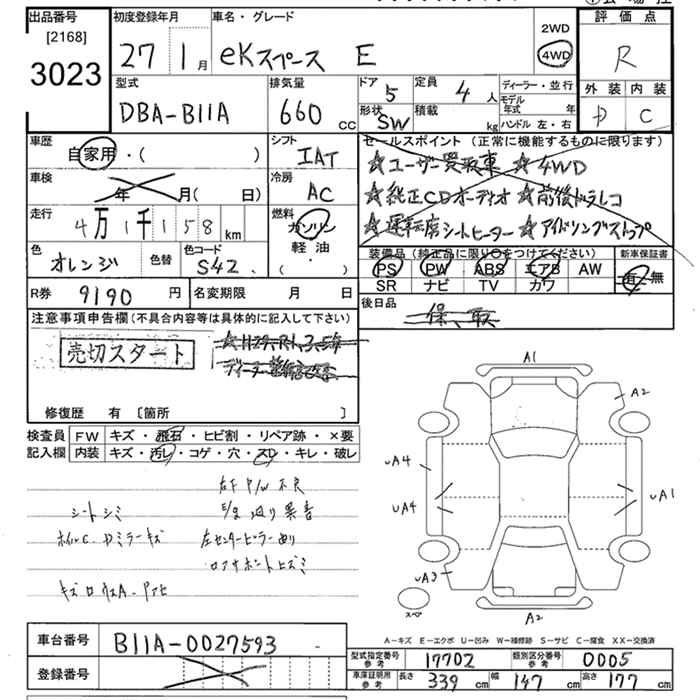 出品番号
[2168]
3023
初度登録年月
27 1月
車名・グレード
eKスペース E
2WD
4WD
評価点
R
外装 内装
C
型式
DBA-B11A
排気量
660 CC
ドア
5
定員
4 人
形状
SW
積載
kg
ディーラー・並行
モデル年式 年
ハンドル 左・右
車歴
自家用・( )
シフト
IAT
車検
年 月( 日)
冷房
AC
走行
4万1千158km
燃料
ガソリン
軽・油
・( )
色
オレンジ
色替
色コード
S42
セールスポイント (正常に機能するものに限ります)
☆ユーザー買取車 ☆4WD
☆純正CDオーディオ ☆前後ドラレコ
☆運転席シートヒーター ☆アイドリングストップ
装備品(純正品に限り〇をつけてください)
PS PW ABS エアB AW
SR ナビ TV カワ
新車保証書
有・無
R券 9190 円
名変期限 月 日
後日品
保、取
注意事項申告欄(不具合内容等は具体的に記入して下さい)
売切スタート
修復歴 有 [箇所 ]
検査員
記入欄
FW キズ・飛石・ヒビ割・リペア跡・×要
内装 キズ・汚レ・コゲ・穴・スレ・キレ・破レ
右F P/W 不良
シートシミ
ホイルC.ドミラーキズ
左センターピラー曲り
A1
A2
uA4
uA4
uA1
uA3
A2
スペア
A-キズ E-エクボ U-凹み W-補修跡 S-サビ C-腐食 XX-交換済
車台番号
B11A-0027593
登録番号
型式指定番号
参考
17702
類別区分番号
参考
0005
車庫証明用
参考
長さ 339 cm
幅 147 cm
高さ 177 cm